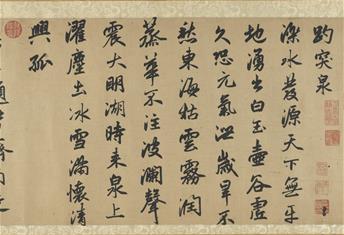 趵突泉
濼水發源天下無平
地湧出白玉壺谷虛
久恐元氣洩歲旱不
愁東海枯雲霧潤
蒸華不注波瀾聲
震大明湖時來泉上
濯塵土冰雪滿懷清
興孤